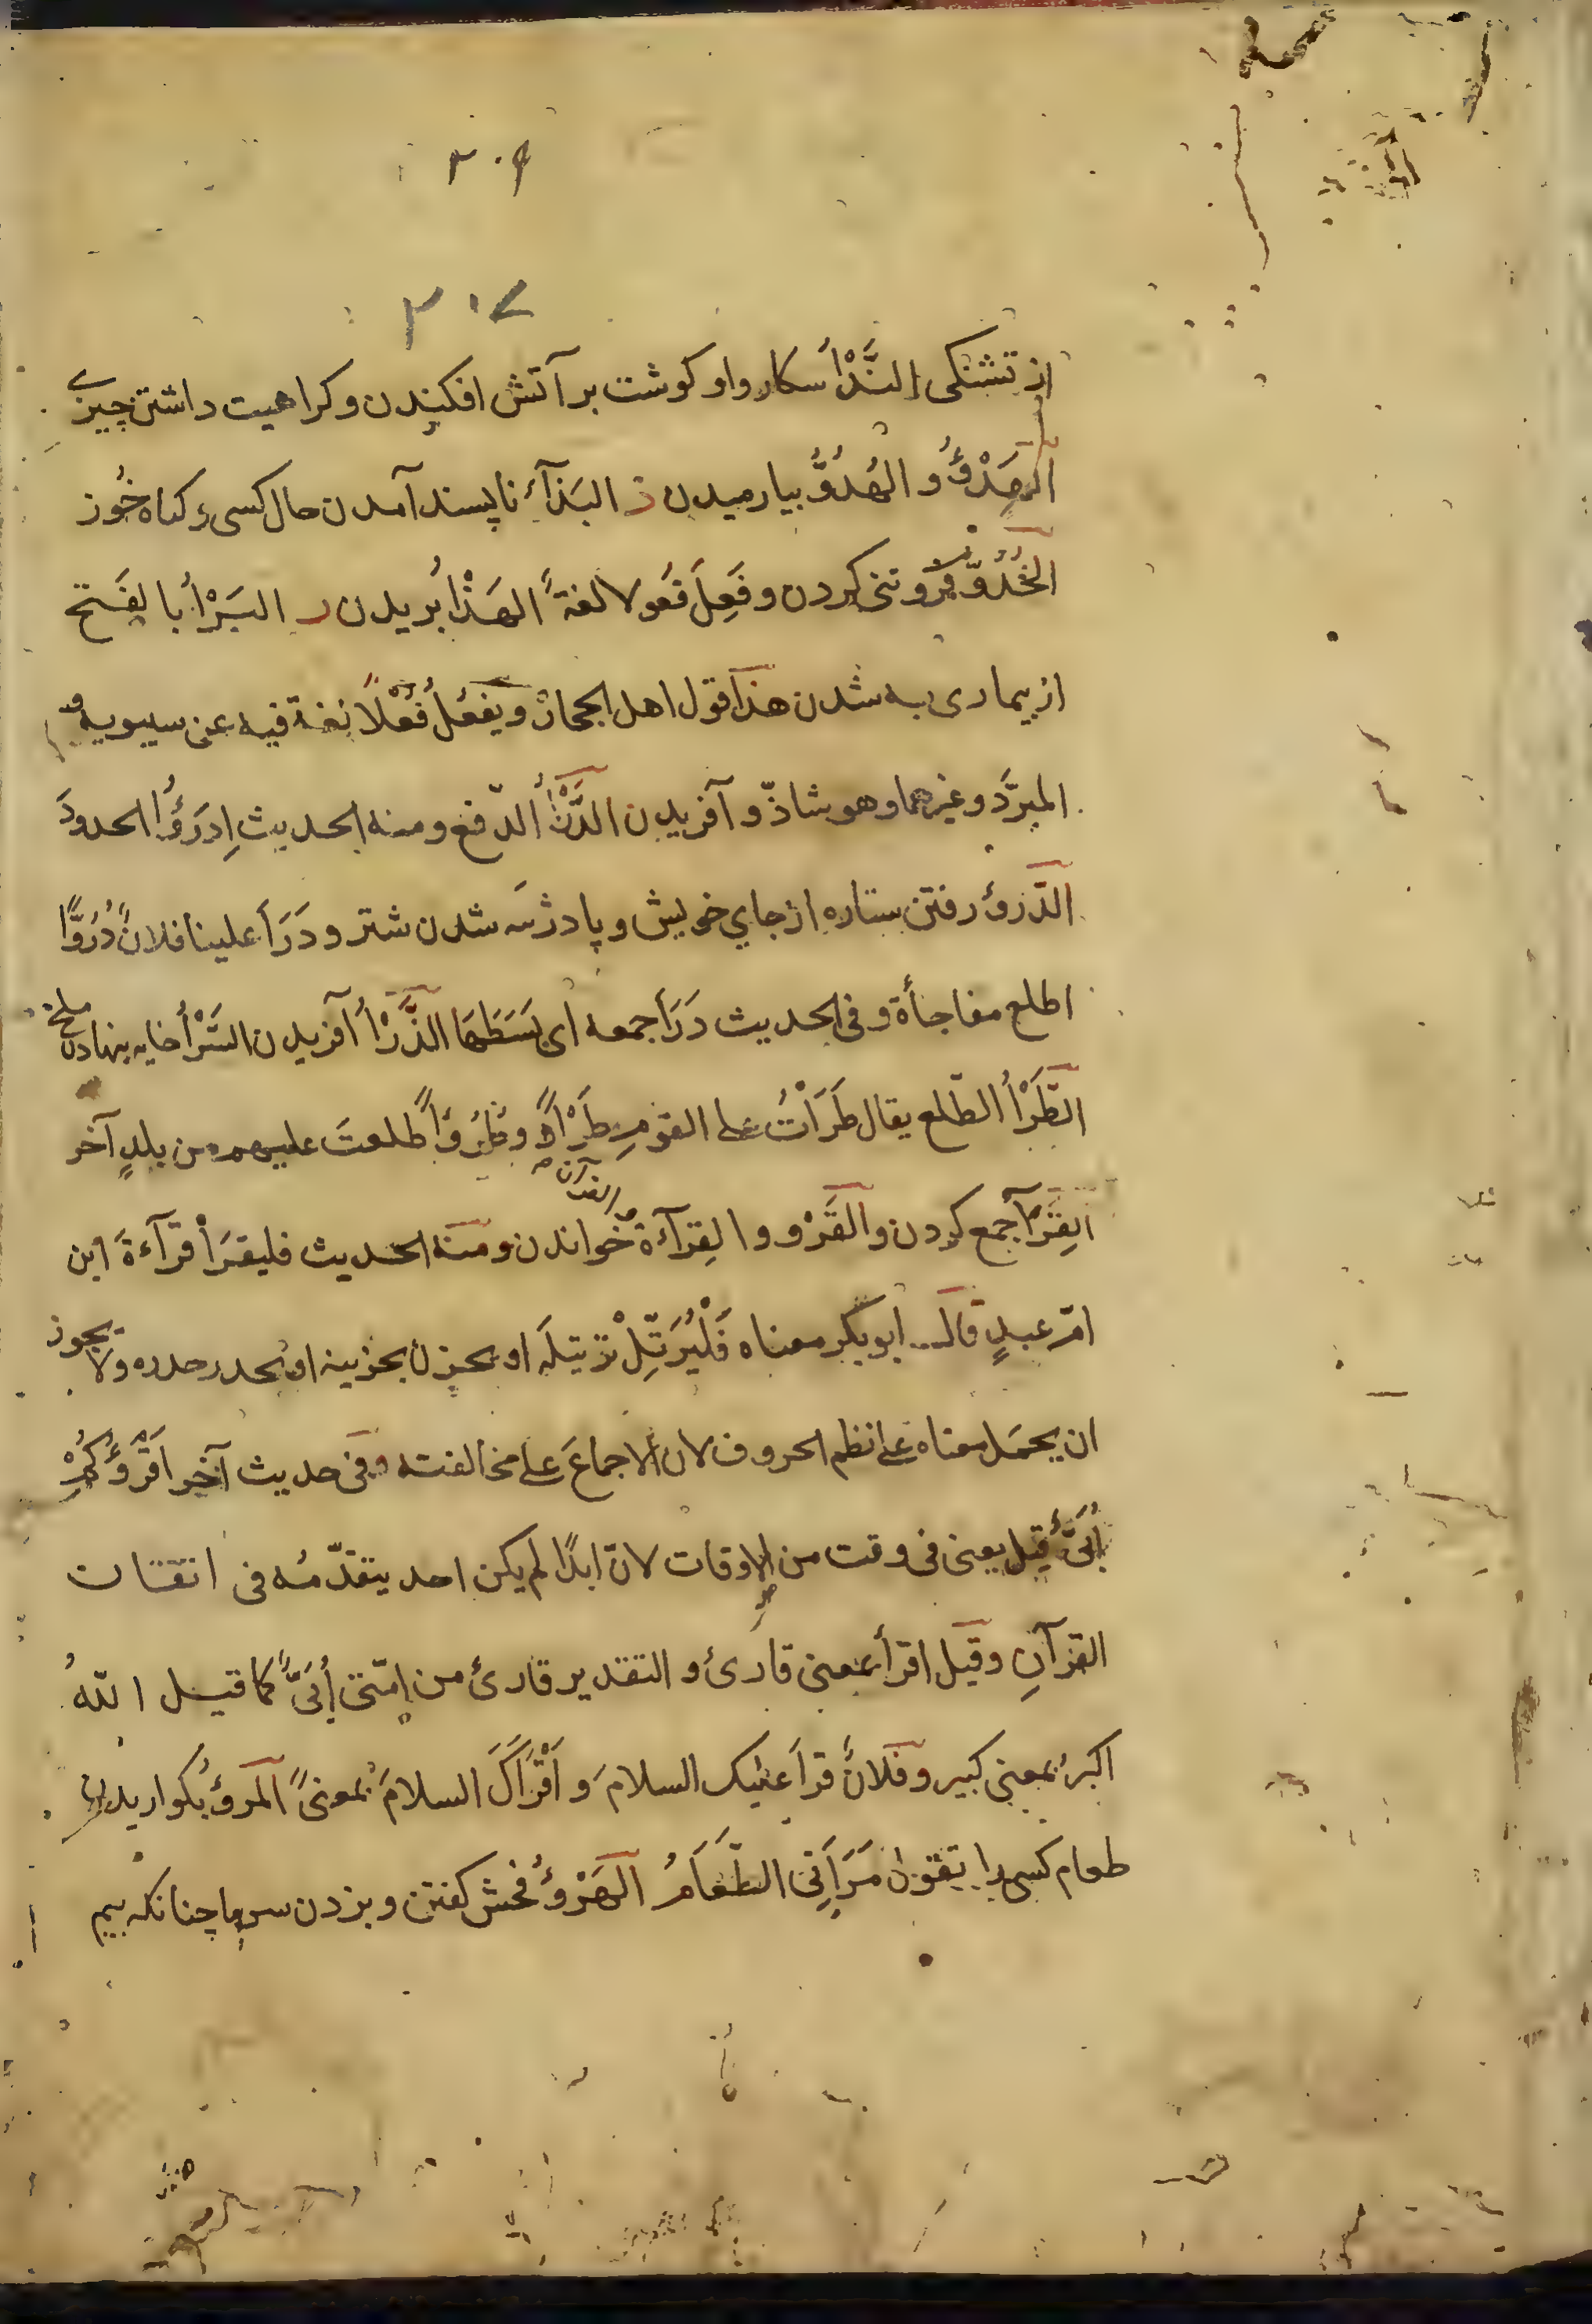 ۳۰۶
۳۰۷
از تشنکی النَّدْأُ سکار واو کوشت بر آتش افکندن وکراهیت داشتن چیزی
الهَدْؤُ و الهُدُوُّ بیارمیدن ذ البَذآءُ ناپسند آمدن حال کسی و کناه خُوز
الخُذُوّ فروتنی کردن وفَعِلَ فَعَولا لغةً الهَذْأُ بُریدن ر البَرْأُ بالفَتح
از بیماری به شدن هذا قول اهل الحجاز ویَفعُلُ فُعْلًا لغة فیه عن سیبویه و
المبرَّد وغیرهما وهو شاذّ و آفریدن الدَّرْأُ الدّفع ومنه الحدیث اِدرَؤُا الحدودَ
الدّرؤُ رفتن ستاره از جای خویش و پا دژسه شدن شتر و دَرَأَ علینا فلانٌ دُرُوًّا
اطلع مفاجأة وفی الحدیث دَرَأ جمعه ای بَسَطَهَا الذَّرْأُ آفریدن السَّرْأُ خایه بنهادن ملخ
الطَّرْأُ الطّلع یقال طَرَاْتُ علی القومِ طَرْاً وطُرُوًا طلعتَ علیهم من بلدٍ آخر
القَرْأُ جمع کردن والقَرْو والقِرآءة خواندن القرآن ومنه الحدیث فلیقرَأْ قرآءةَ ابن
امّ عبدٍ قالـ ابوبکر معناه فَلْیُرَتِّلْ ترتیلَه او یحزن بحزینه او یحدر حدره ولا یجوز
ان یحمَل معناه علی نظم الحروف لان الاجماعَ علی مخالفته وفی حدیث آخر اَقْرَؤُکُمْ
اُبَیٌّ قیل یعنی فی وقت من الاوقات لانّ ابدًا لم یکن احد یتقدّمُه فی اتقان
القرآنِ وقیل اقرأ بمعنی قارئ و التقدیر قارئ من امّتی اُبَیٌّ کما قیل اللهُ
اکبرُ بمعنی کبیر وفلانٌ قرأ علیک السلامَ و اَقْرَأَکَ السلامَ بمعنیً المرؤُ بکواریدن
طعام کسی را تقول مَرَأَنِی الطَّعَامُ الهَرْؤُ فحش کفتن وبزدن سرما چنانکه بیم